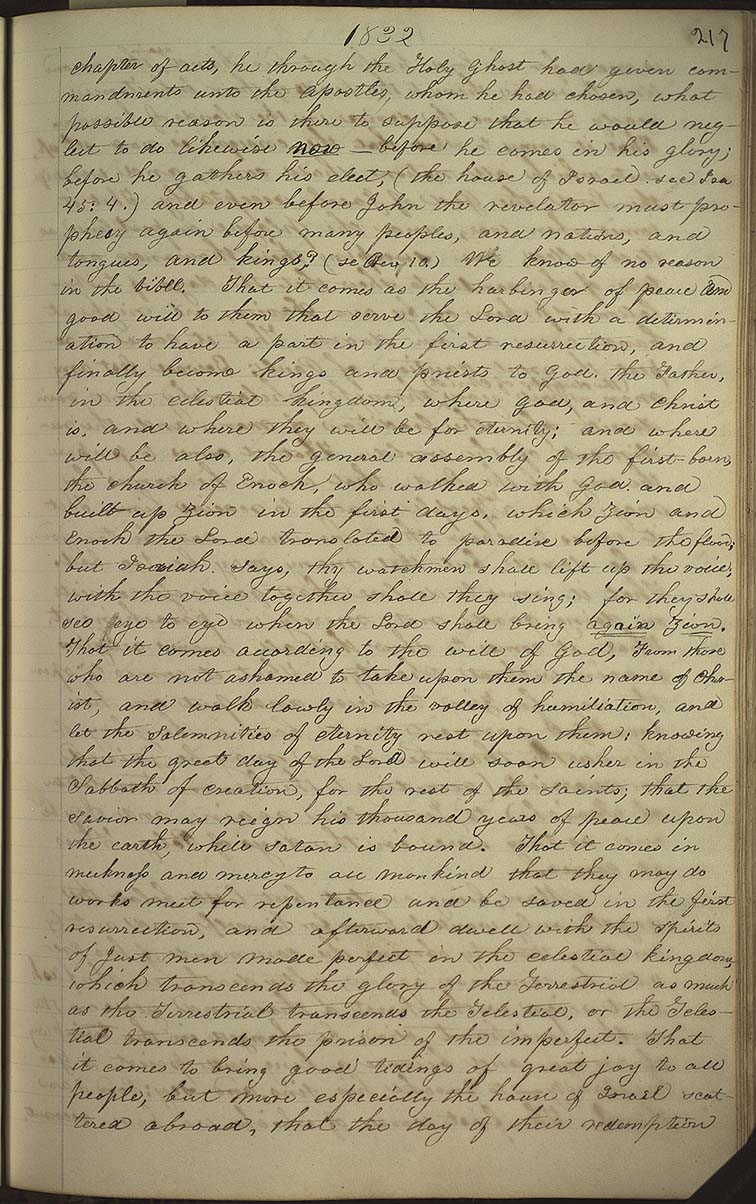 1832
217
chapter of acts, he through the Holy Ghost had given com-
mandments unto the Apostles, whom he had chosen, what
possible reason is there to suppose that he would neg-
lect to do likewise now — before he comes in his glory;
before he gathers his elect, (the house of Israel. see Isa
45: 4.) and even before John the revelator must pro-
phecy again before many peoples, and nations, and
tongues, and kings? (se Rev, 10.) We know of no reason
in the bible. That it comes as the harbinger of peace and
good will to them that serve the Lord with a determin-
ation to have a part in the first resurrection, and
finally become kings and priests to God. the Father,
in the celestial kingdom, where God, and Christ
is. and where they will be for eternity; and where
will be also, the general assembly of the first-born,
the church of Enoch, who walked with God. and
built up Zion in the first days, which Zion and
Enoch the Lord translated to paradise before the flood;
but Isaiah. says, thy watchmen shall lift up the voice;
with the voice together shall they sing; for they shall
see eye to eye when the Lord shall bring again Zion.
That it comes according to the will of God, From those
who are not ashamed to take upon them the name of Chr-
ist, and walk lowly in the valley of humiliation, and
let the solemnities of eternity rest upon them; knowing
that the great day of the Lord will soon usher in the
Sabbath of creation, for the rest of the Saints; that the
Savior may reign his thousand years of peace upon
the earth, while satan is bound. That it comes in
meekness and mercy to all mankind that they may do
works meet for repentance and be saved in the first
resurrection, and afterward dwell with the spirits
of just men made perfect in the celestial kingdom,
which transcends the glory of the Terrestrial as much
as the Terrestrial transcends the Telestial, or the Teles-
tial transcends the prison of the imperfect. That
it comes to bring good tidings of great joy to all
people, but more especially the house of Israel scat-
tered abroad, that the day of their redemption